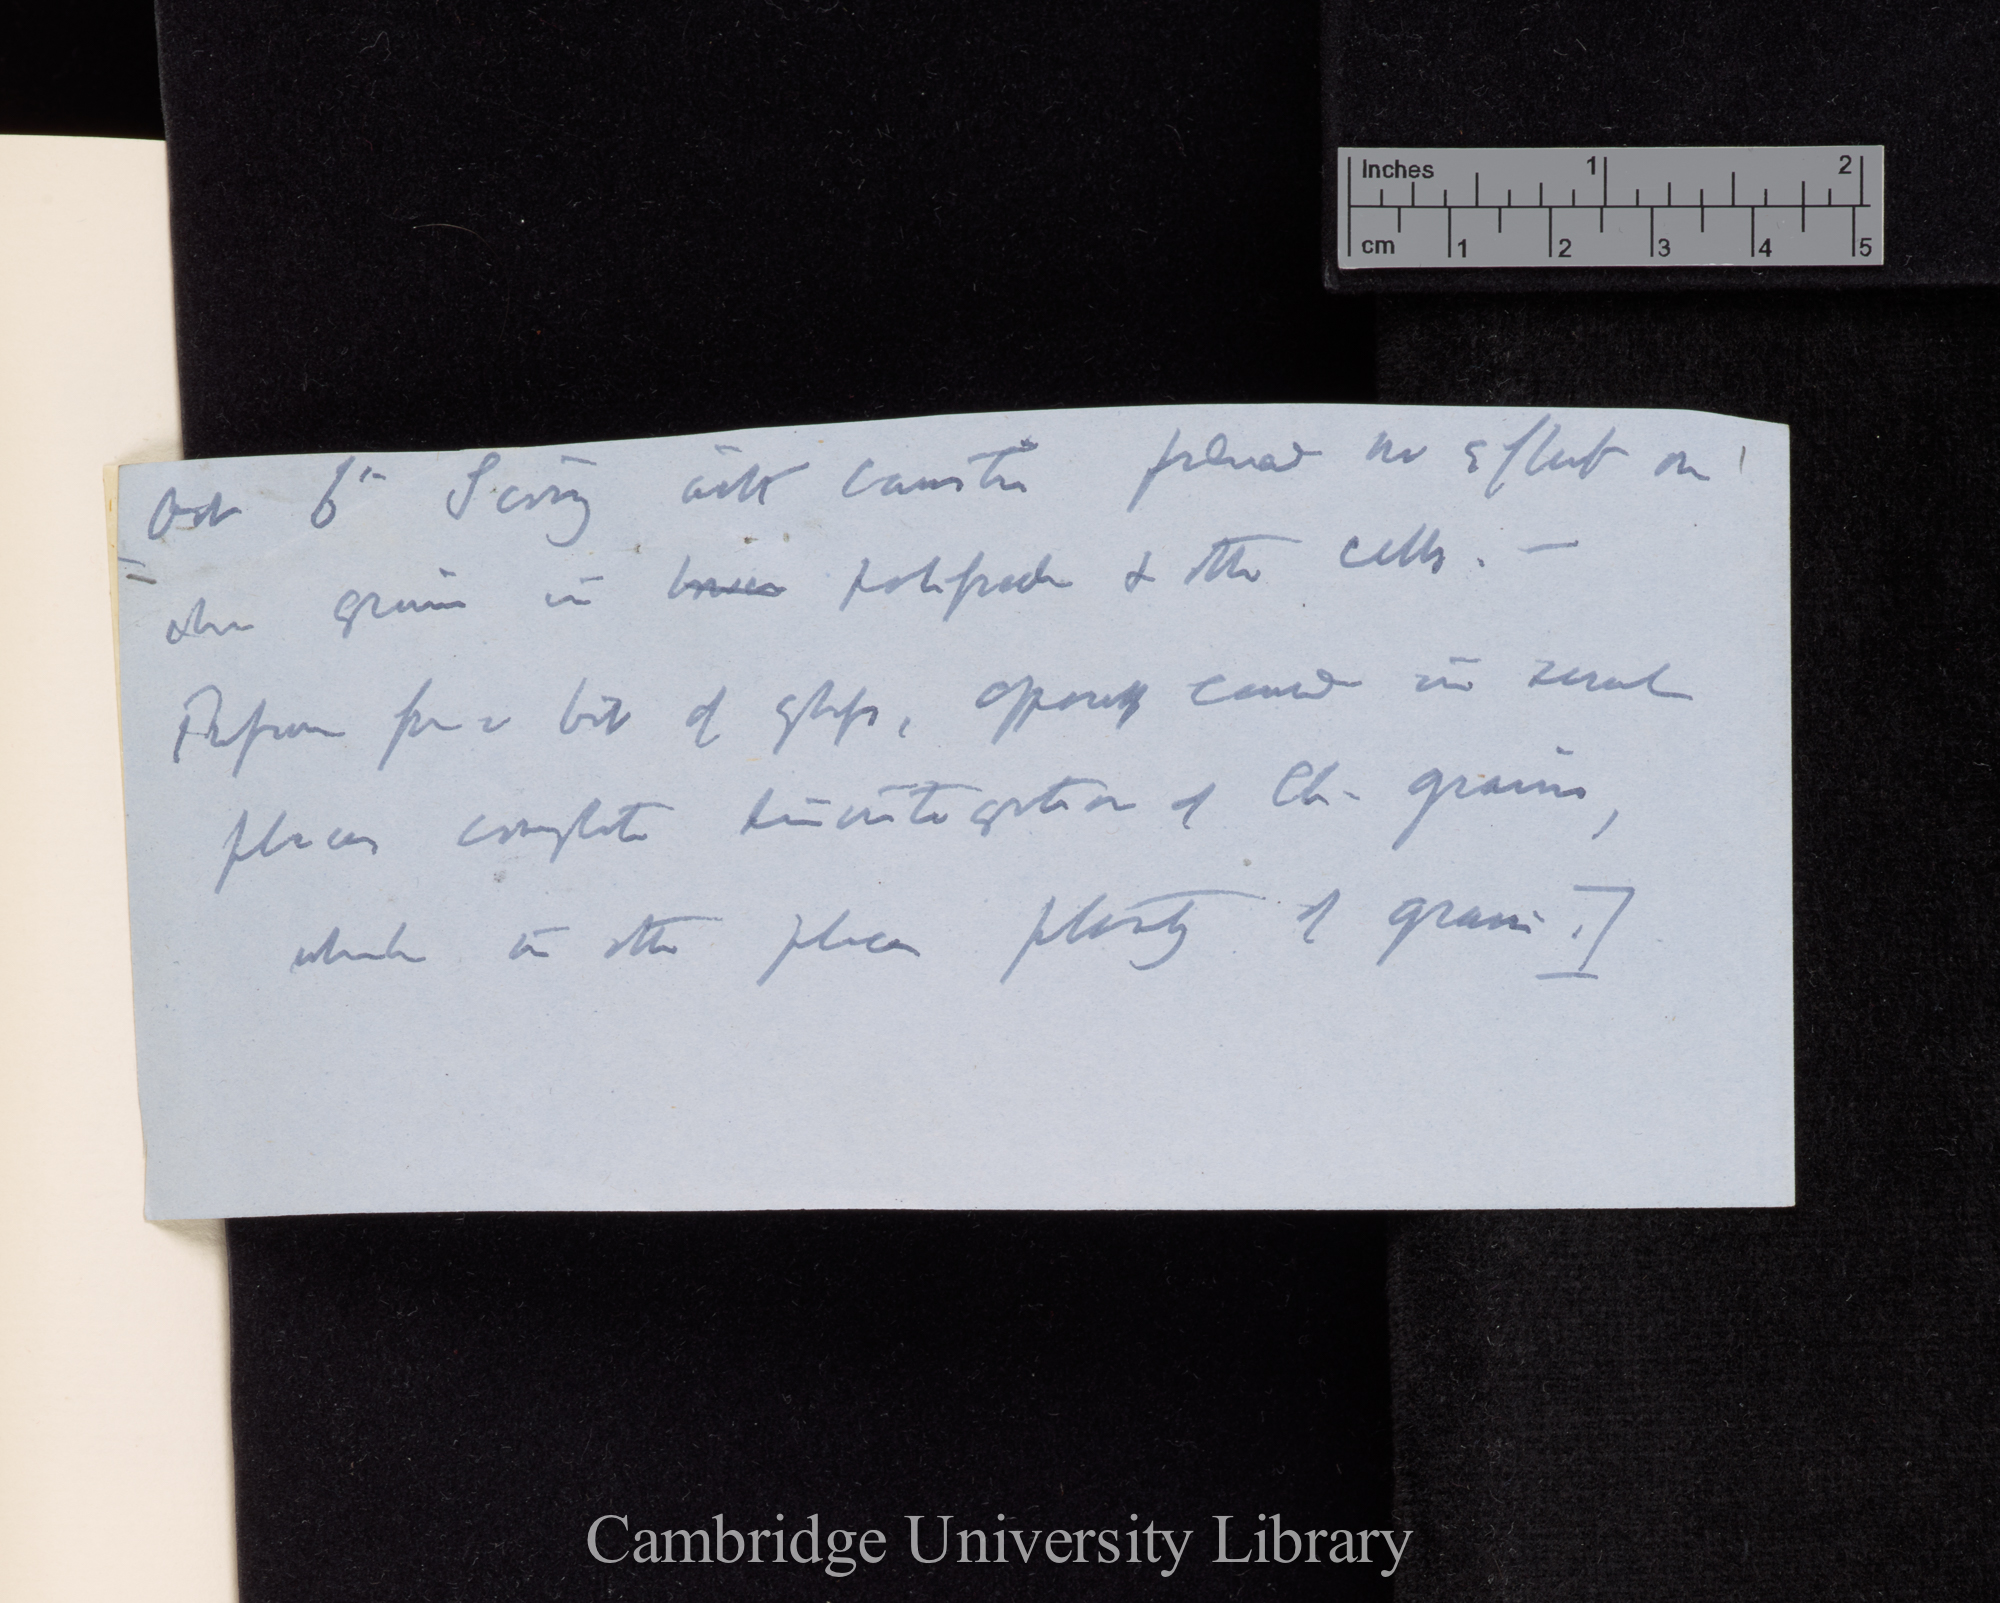 Inches 1 2
cm 1 2 3 4 5
Oct 6th Scoring with caustic produced no effect on
chro grains in palisade & other cells. —
Pressure from a bit of glass, apparently caused in several
places complete disintegration of Ch. grains,
whilst in other places plenty of grains.]
Cambridge University Library